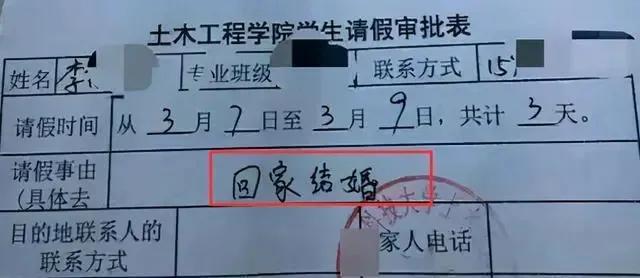 土木工程学院学生请假审批表
姓名 李 专业班级 联系方式 15
请假时间 从 3 月 7 日至 3 月 9 日，共计 3 天。
请假事由 回家结婚
(具体去
科技大学土
目的地联系人的 家人电话
联系方式